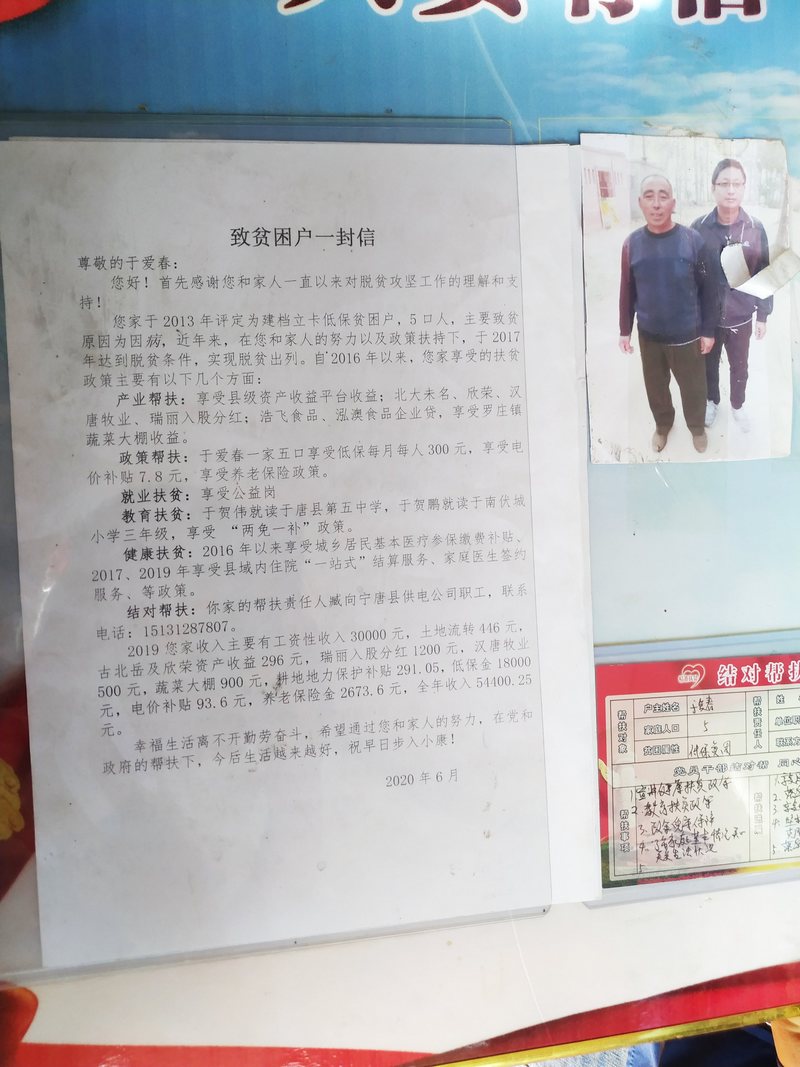 致贫困户一封信
尊敬的于爱春：
您好！首先感谢您和家人一直以来对脱贫攻坚工作的理解和支
持！
您家于2013年评定为建档立卡低保贫困户，5口人，主要致贫
原因为因病，近年来，在您和家人的努力以及政策扶持下，于2017
年达到脱贫条件，实现脱贫出列。自2016年以来，您家享受的扶贫
政策主要有以下几个方面：
产业帮扶：享受县级资产收益平台收益；北大未名、欣荣、汉
唐牧业、瑞丽入股分红；浩飞食品、泓澳食品企业贷，享受罗庄镇
蔬菜大棚收益。
政策帮扶：于爱春一家五口享受低保每月每人300元，享受电
价补贴7.8元，享受养老保险政策。
就业扶贫：享受公益岗
教育扶贫：于贺伟就读于唐县第五中学，于贺鹏就读于南伏城
小学三年级，享受 “两免一补”政策。
健康扶贫：2016年以来享受城乡居民基本医疗参保缴费补贴、
2017、2019年享受县域内住院“一站式”结算服务、家庭医生签约
服务、等政策。
结对帮扶：你家的帮扶责任人臧向宁唐县供电公司职工，联系
电话：15131287807。
2019您家收入主要有工资性收入30000元，土地流转446元，
古北岳及欣荣资产收益296元，瑞丽入股分红1200元，汉唐牧业
500元，蔬菜大棚900元，耕地地力保护补贴291.05，低保金18000
元，电价补贴93.6元，养老保险金2673.6元，全年收入54400.25
元。
幸福生活离不开勤劳奋斗，希望通过您和家人的努力，在党和
政府的帮扶下，今后生活越来越好，祝早日步入小康！
2020年6月
结对帮扶
帮扶对象
户主姓名
家庭人口 5
贫困属性 低保贫困
帮扶责任人
姓
单位职
联系方
党员干部结对帮 同心
帮扶事项
2、教育扶贫政策
帮扶进展